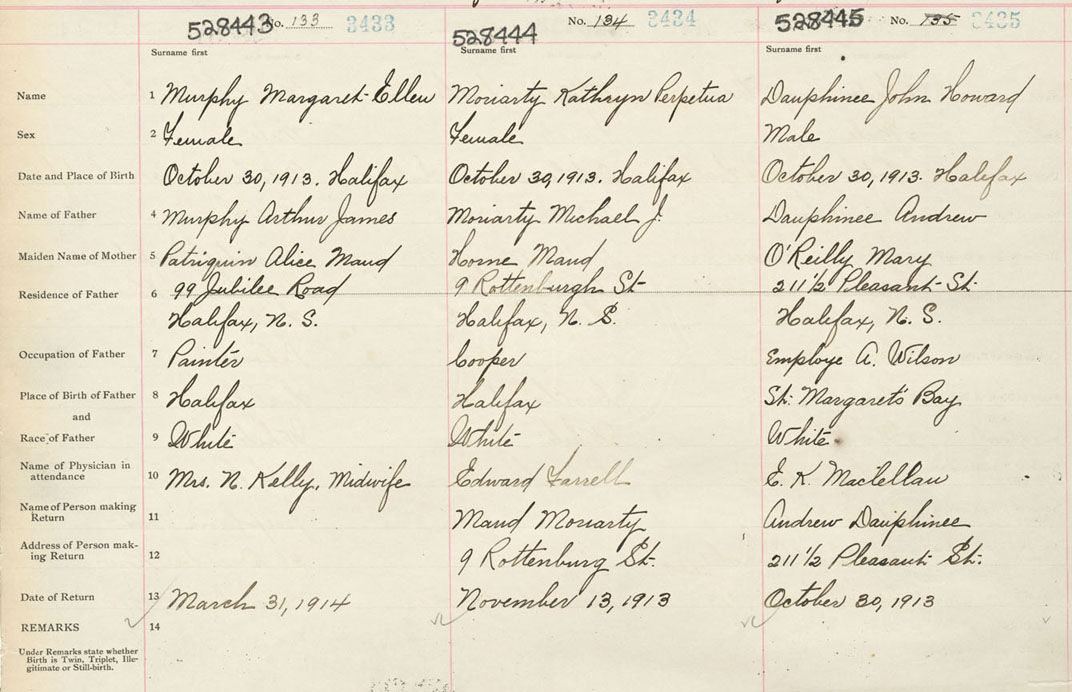 528443 No. 133 3433
528444 No. 134 3434
528445 No. 135 3435
Surname first Surname first Surname first
Name 1 Murphy Margaret Ellen Moriarty Kathryn Perpetua Dauphinee John Howard
Sex 2 Female Female Male
Date and Place of Birth October 30, 1913. Halifax October 30, 1913. Halifax October 30, 1913. Halifax
Name of Father 4 Murphy Arthur James Moriarty Michael J. Dauphinee Andrew
Maiden Name of Mother 5 Patriquin Alice Maud Horne Maud O'Reilly Mary
Residence of Father 6 99 Jubilee Road 9 Rottenburgh St 211 1/2 Pleasant St.
Halifax, N. S. Halifax, N. S. Halifax, N. S.
Occupation of Father 7 Painter Cooper Employe A. Wilson
Place of Birth of Father 8 Halifax Halifax St. Margaret's Bay
and
Race of Father 9 White White White
Name of Physician in
attendance 10 Mrs. N. Kelly, Midwife Edward Farrell E. K. Maclellan
Name of Person making
Return 11 Maud Moriarty Andrew Dauphinee
Address of Person mak-
ing Return 12 9 Rottenburg St. 211 1/2 Pleasant St.
Date of Return 13 March 31, 1914 November 13, 1913 October 30, 1913
REMARKS 14
Under Remarks state whether
Birth is Twin, Triplet, Ille-
gitimate or Still-birth.